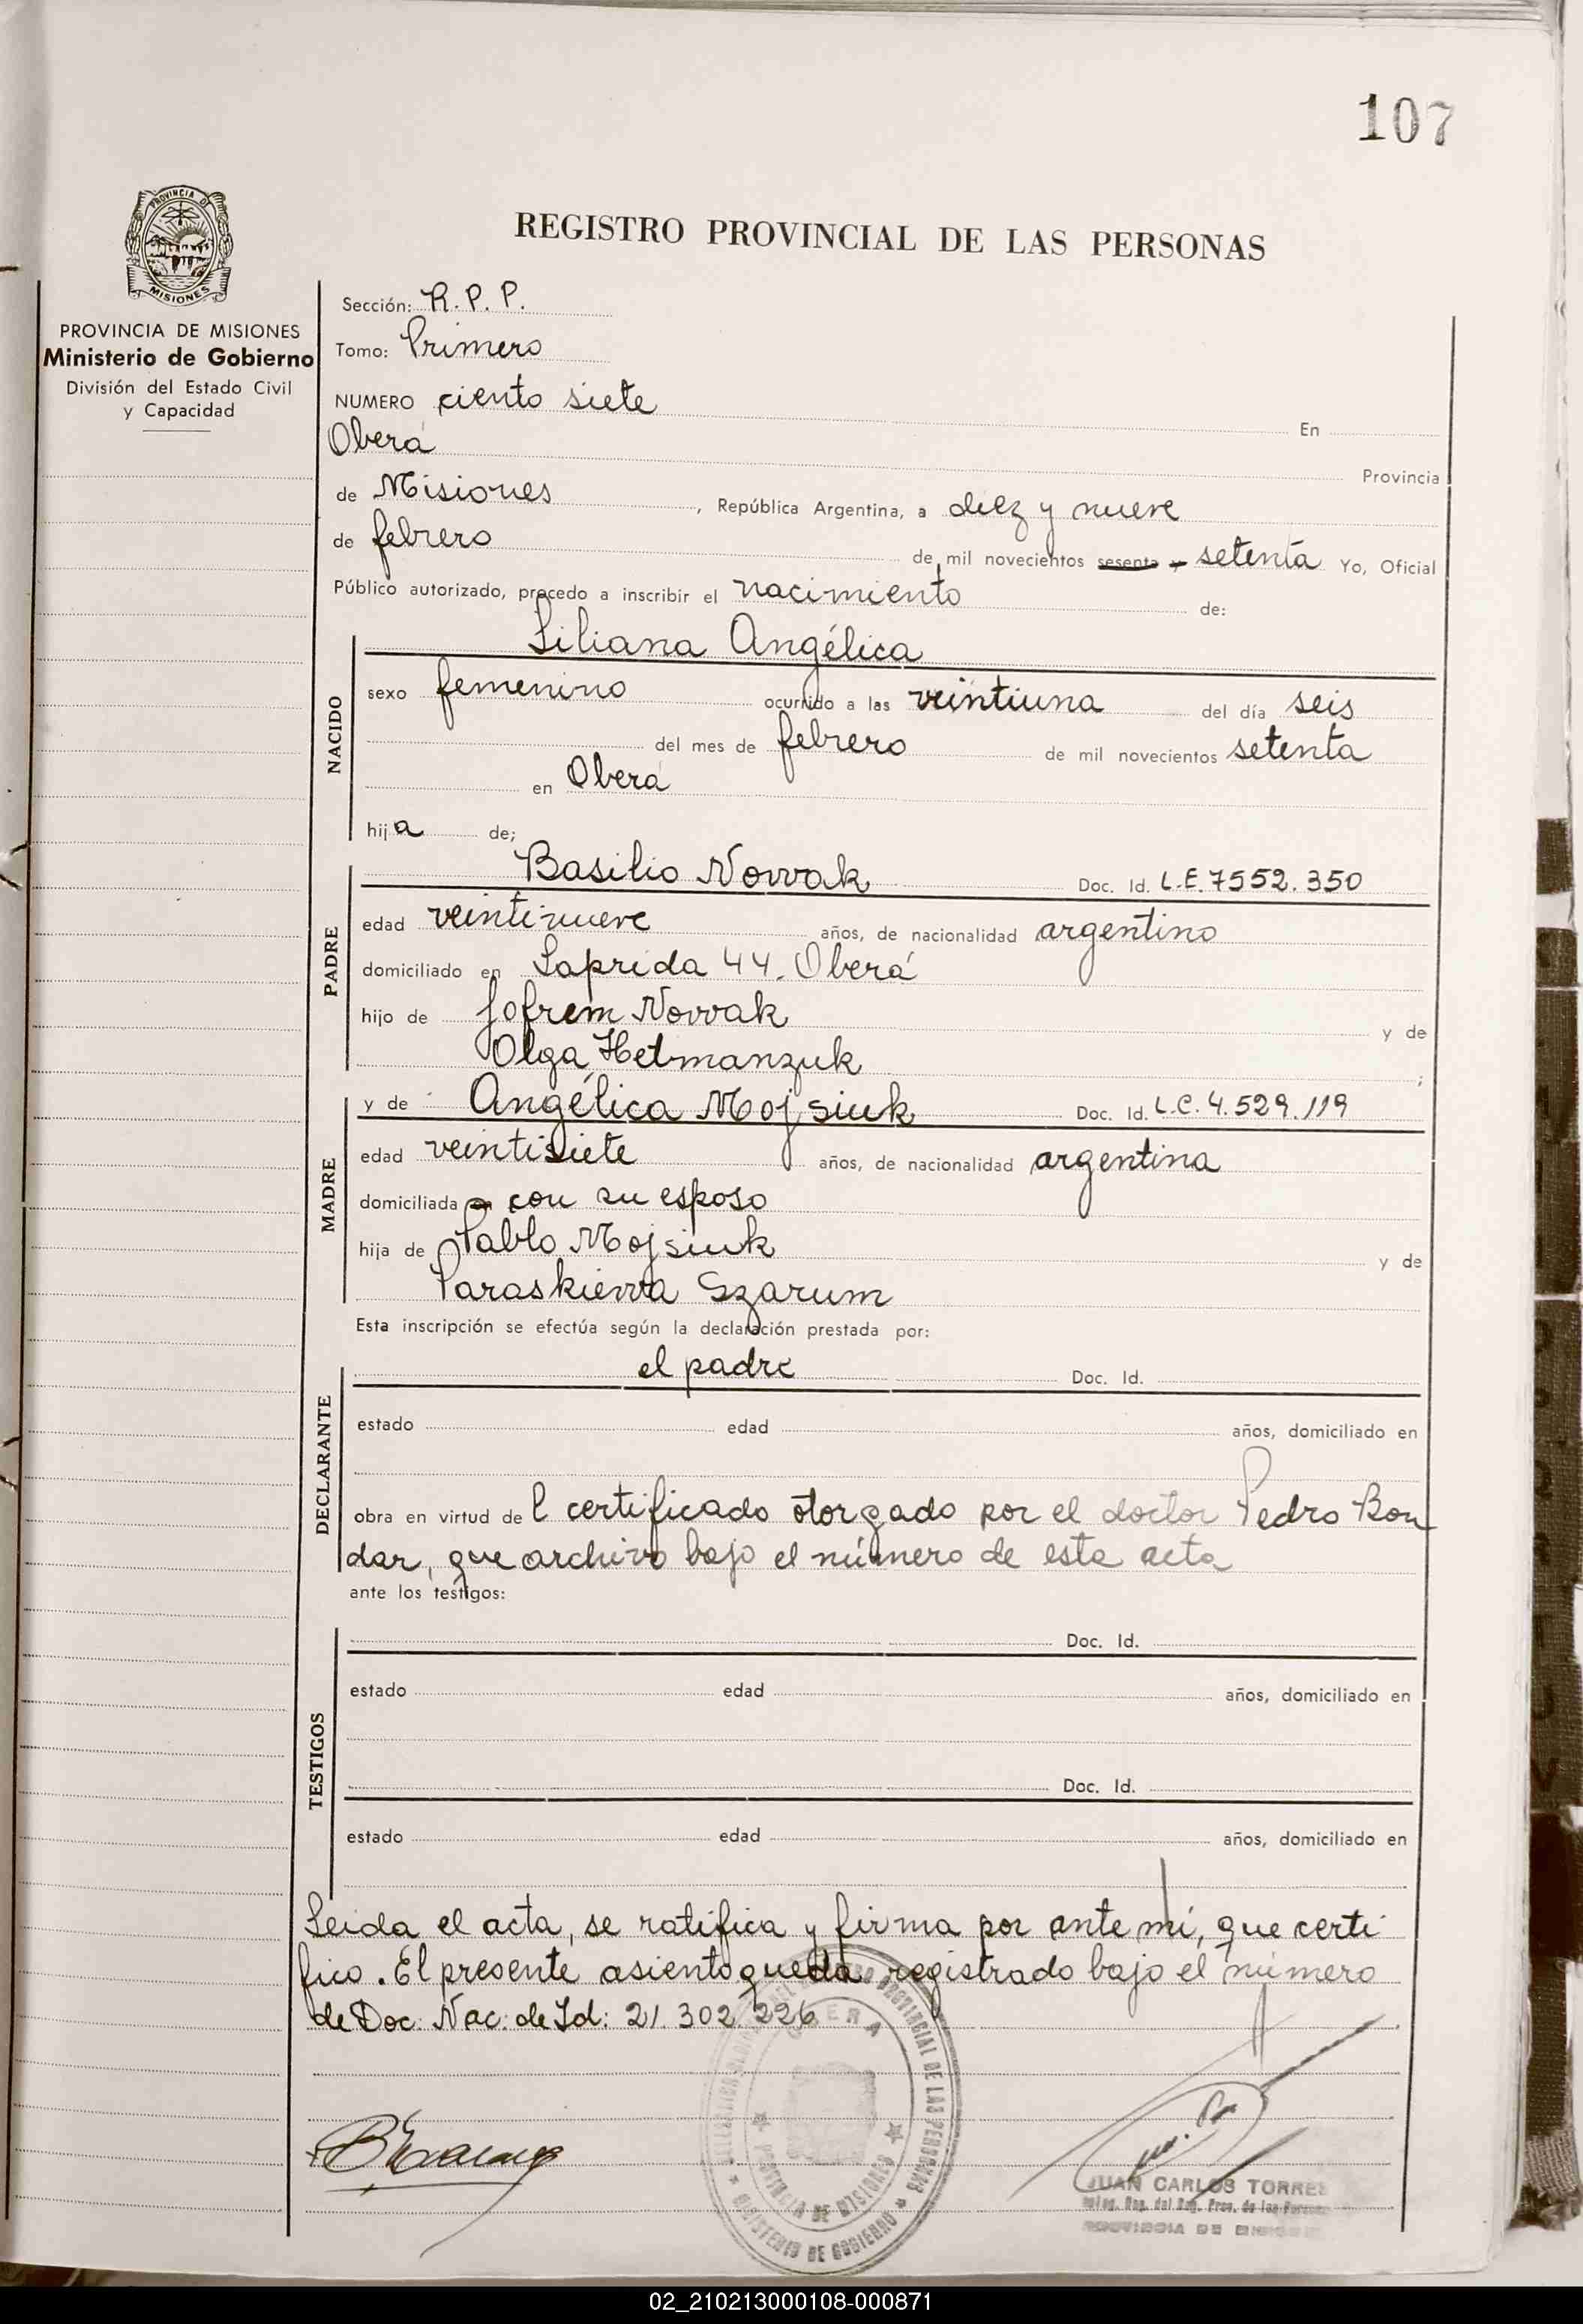 107
PROVINCIA DE
MISIONES
REGISTRO PROVINCIAL DE LAS PERSONAS
PROVINCIA DE MISIONES
Ministerio de Gobierno
División del Estado Civil
y Capacidad
Sección: R. P. P.
Tomo: Primero
NUMERO ciento siete En
Oberá Provincia
de Misiones, República Argentina, a diez y nueve
de febrero de mil novecientos sesenta y setenta Yo, Oficial
Público autorizado, procedo a inscribir el nacimiento de:
Liliana Angélica
NACIDO
sexo femenino ocurrido a las veintiuna del día seis
del mes de febrero de mil novecientos setenta
en Oberá
hija de;
Basilio Novvak Doc. Id. L.E. 7552.350
PADRE
edad veintinueve años, de nacionalidad argentino
domiciliado en Laprida 44. Oberá
hijo de Jofrem Novvak y de
Olga Hetmanzuk;
y de Angélica Mojsiuk Doc. Id. L.C. 4.529.119
MADRE
edad veintisiete años, de nacionalidad argentina
domiciliada en con su esposo
hija de Pablo Mojsiuk y de
Paraskievva Szarum
Esta inscripción se efectúa según la declaración prestada por:
el padre Doc. Id.
DECLARANTE
estado edad años, domiciliado en
obra en virtud del certificado otorgado por el doctor Pedro Bon
dar, que archivo bajo el número de esta acta
ante los testigos:
Doc. Id.
TESTIGOS
estado edad años, domiciliado en
Doc. Id.
estado edad años, domiciliado en
Leida el acta, se ratifica y firma por ante mí, que certi
fico. El presente asiento queda registrado bajo el número
de Doc. Nac. de Id: 21.302.226
OBERA
PROVINCIAL DE LAS PERSONAS
PROVINCIA DE MISIONES
MINISTERIO DE GOBIERNO
JUAN CARLOS TORRES
02_210213000108-000871